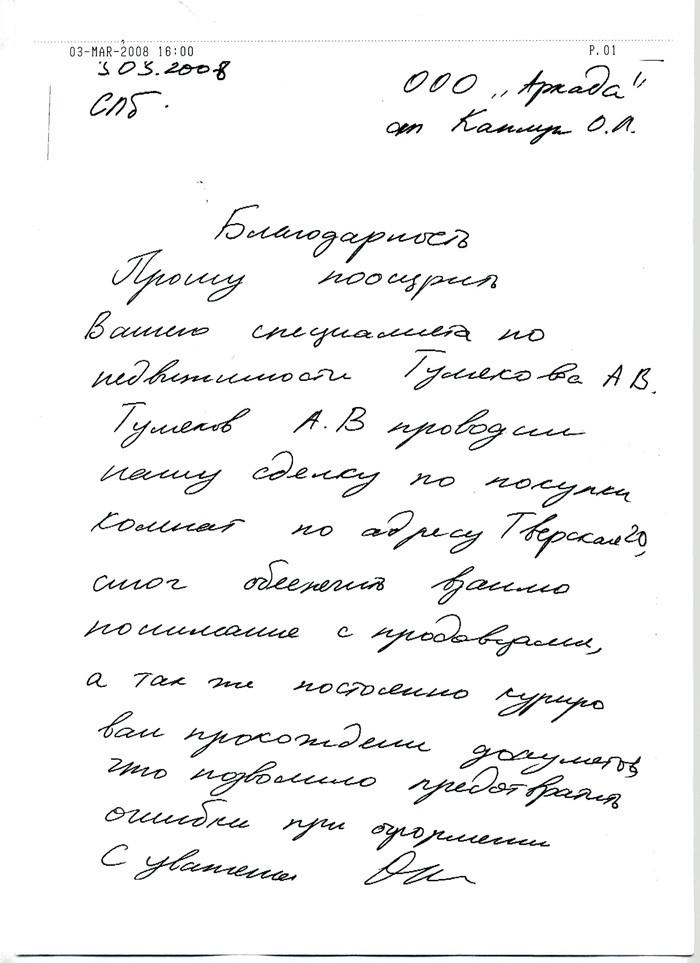 03-MAR-2008 16:00 P.01
3 03.2008
СПб.
ООО „Аркада"
от Каплун О.Л.
Благодарность
Прошу поощрить
Вашего специалиста по
недвижимости Тумекова А В.
Тумеков А.В проводил
нашу сделку по покупки
комнат по адресу Тверская 20,
смог обеспечить взаимо
понимание с продавцами,
а так же постоянно куриро
вал прохождени документов
что позволило предотвратить
ошибки при оформлении
С уважением